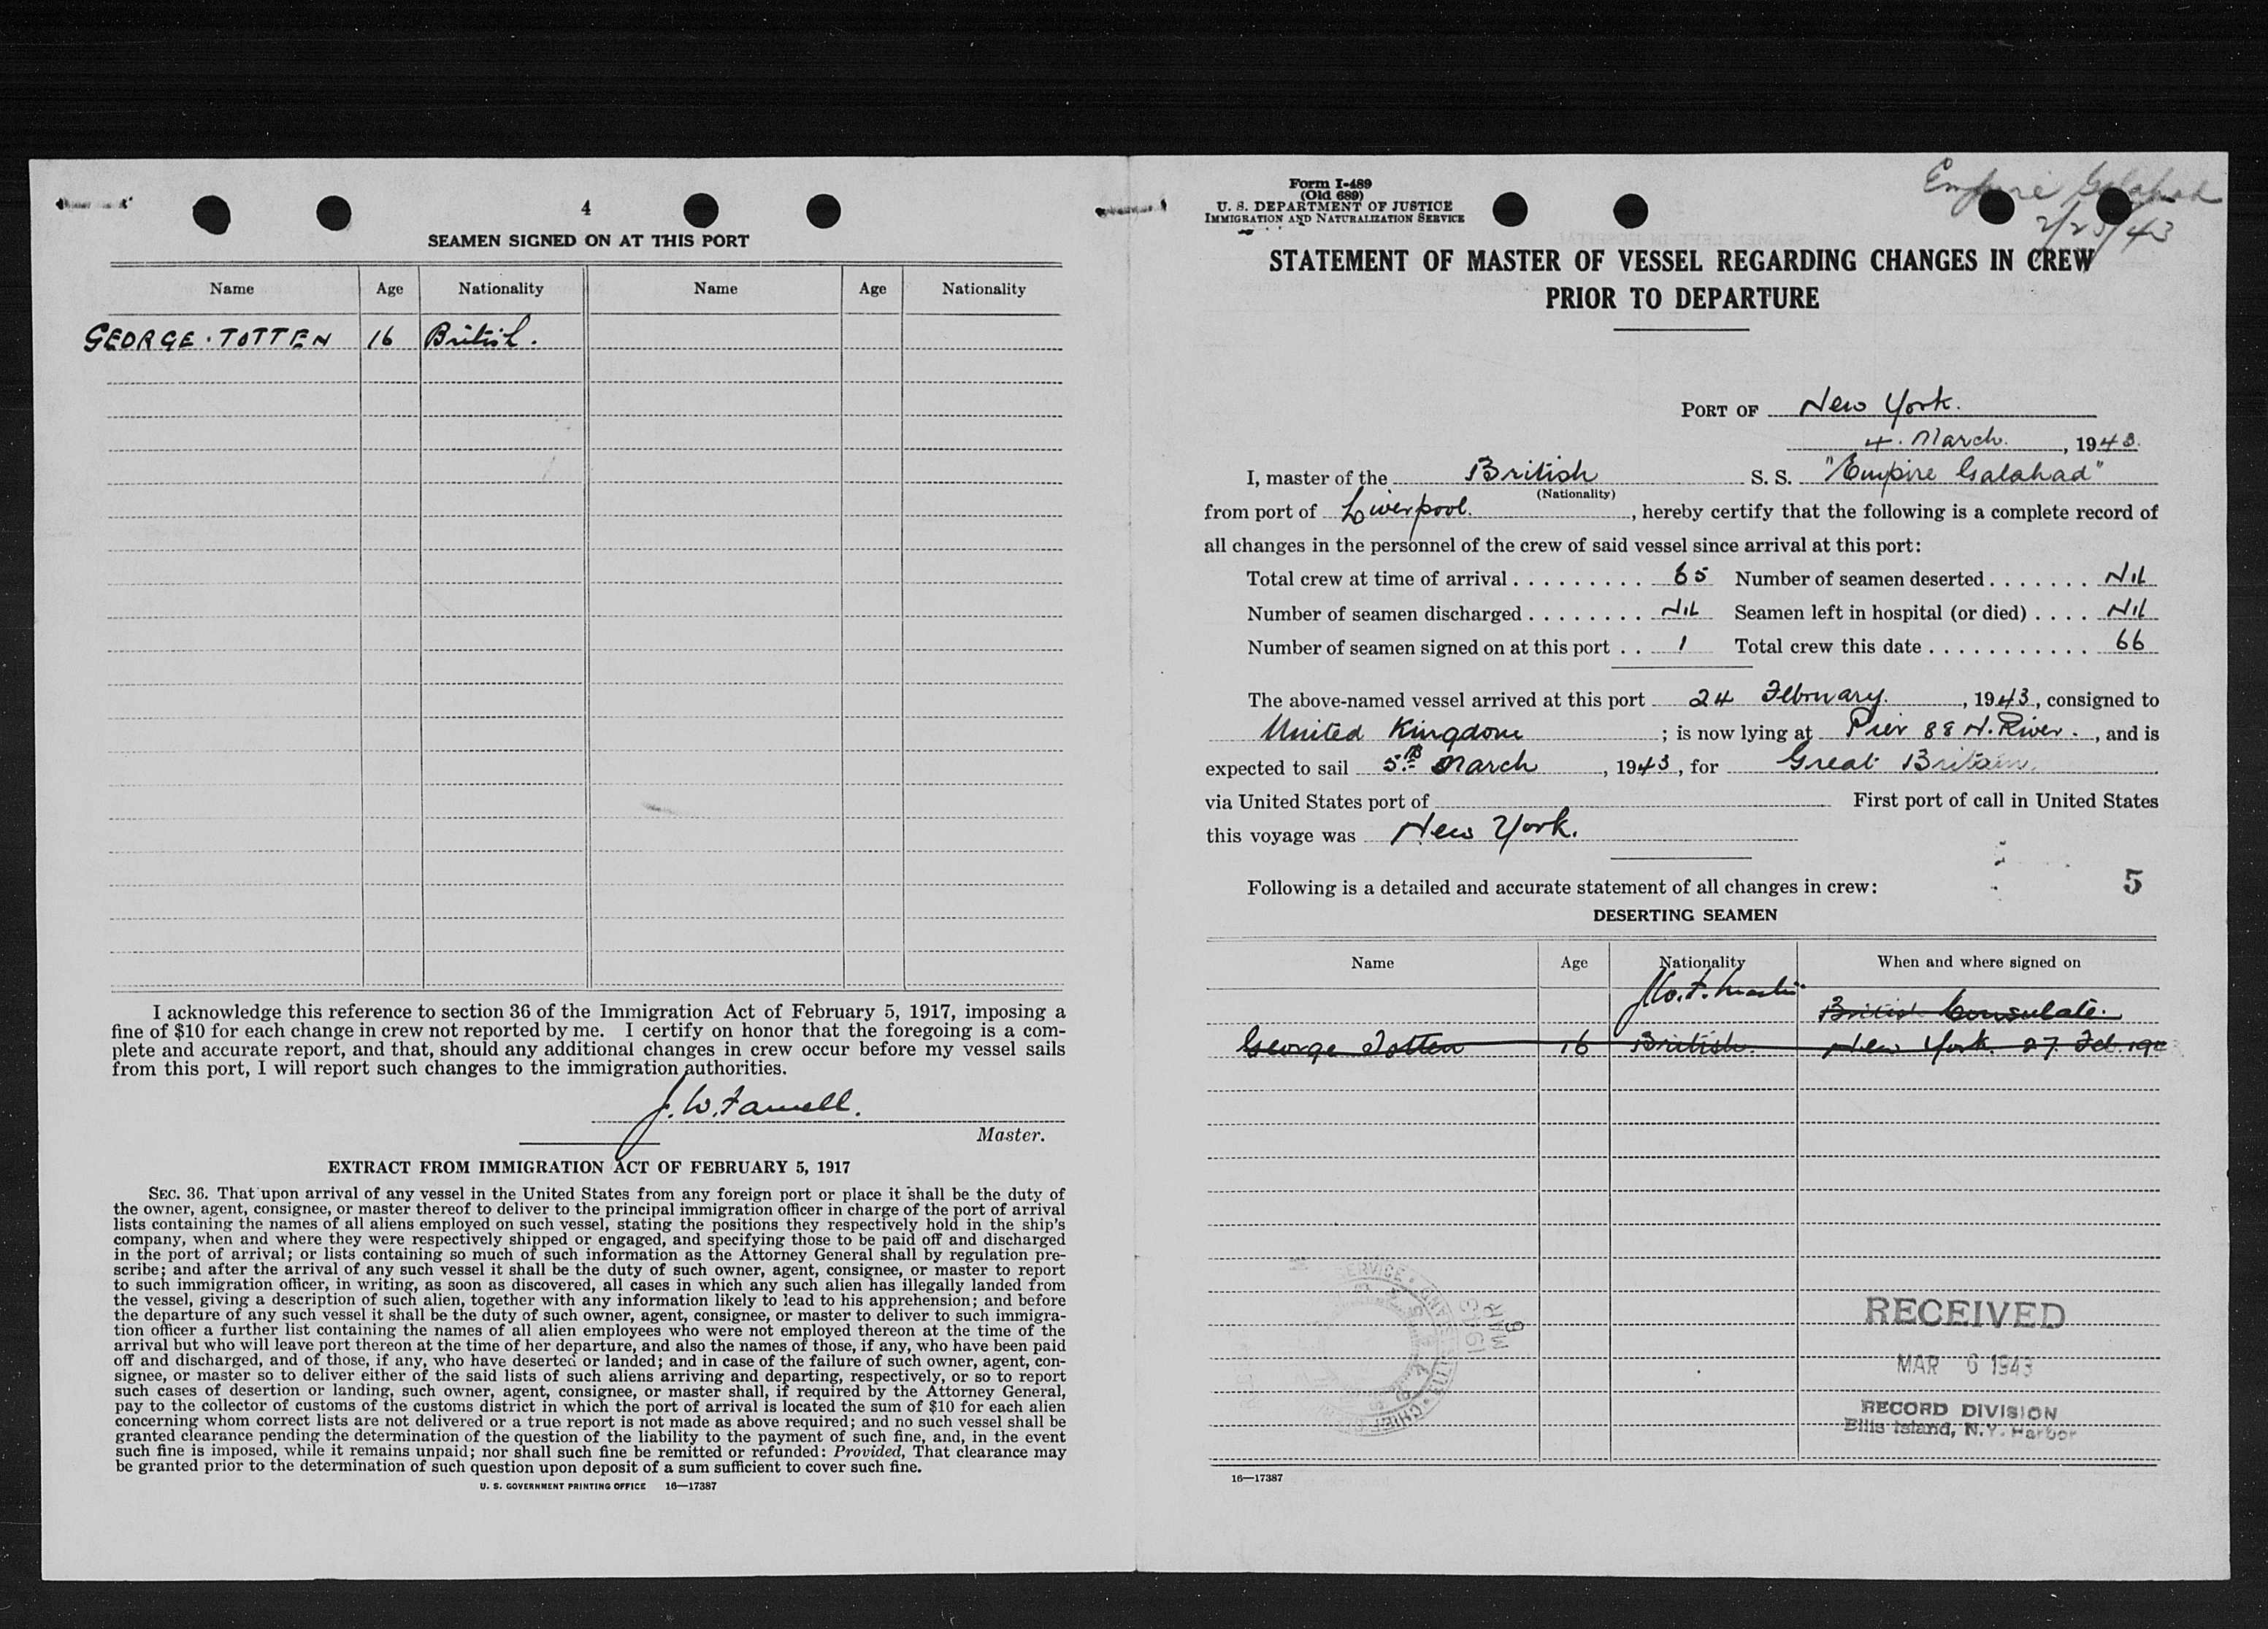 4
SEAMEN SIGNED ON AT THIS PORT
Name Age Nationality Name Age Nationality
GEORGE · TOTTEN 16 British.
I acknowledge this reference to section 36 of the Immigration Act of February 5, 1917, imposing a
fine of $10 for each change in crew not reported by me. I certify on honor that the foregoing is a com-
plete and accurate report, and that, should any additional changes in crew occur before my vessel sails
from this port, I will report such changes to the immigration authorities.
J. W.
Master.
EXTRACT FROM IMMIGRATION ACT OF FEBRUARY 5, 1917
SEC. 36. That upon arrival of any vessel in the United States from any foreign port or place it shall be the duty of
the owner, agent, consignee, or master thereof to deliver to the principal immigration officer in charge of the port of arrival
lists containing the names of all aliens employed on such vessel, stating the positions they respectively hold in the ship's
company, when and where they were respectively shipped or engaged, and specifying those to be paid off and discharged
in the port of arrival; or lists containing so much of such information as the Attorney General shall by regulation pre-
scribe; and after the arrival of any such vessel it shall be the duty of such owner, agent, consignee, or master to report
to such immigration officer, in writing, as soon as discovered, all cases in which any such alien has illegally landed from
the vessel, giving a description of such alien, together with any information likely to lead to his apprehension; and before
the departure of any such vessel it shall be the duty of such owner, agent, consignee, or master to deliver to such immigra-
tion officer a further list containing the names of all alien employees who were not employed thereon at the time of the
arrival but who will leave port thereon at the time of her departure, and also the names of those, if any, who have been paid
off and discharged, and of those, if any, who have deserted or landed; and in case of the failure of such owner, agent, con-
signee, or master so to deliver either of the said lists of such aliens arriving and departing, respectively, or so to report
such cases of desertion or landing, such owner, agent, consignee, or master shall, if required by the Attorney General,
pay to the collector of customs of the customs district in which the port of arrival is located the sum of $10 for each alien
concerning whom correct lists are not delivered or a true report is not made as above required; and no such vessel shall be
granted clearance pending the determination of the question of the liability to the payment of such fine, and, in the event
such fine is imposed, while it remains unpaid; nor shall such fine be remitted or refunded: Provided, That clearance may
be granted prior to the determination of such question upon deposit of a sum sufficient to cover such fine.
U. S. GOVERNMENT PRINTING OFFICE 16—17387
Form I-489
(Old 689)
U. S. DEPARTMENT OF JUSTICE
IMMIGRATION AND NATURALIZATION SERVICE
Empire Galahad
2/25/43
STATEMENT OF MASTER OF VESSEL REGARDING CHANGES IN CREW
PRIOR TO DEPARTURE
PORT OF New York.
4. March. , 1943.
I, master of the British S. S. "Empire Galahad"
(Nationality)
from port of Liverpool. , hereby certify that the following is a complete record of
all changes in the personnel of the crew of said vessel since arrival at this port:
Total crew at time of arrival . . . . . . . . . 65 Number of seamen deserted . . . . . . . Nil
Number of seamen discharged . . . . . . . . Nil Seamen left in hospital (or died) . . . . Nil
Number of seamen signed on at this port . . 1 Total crew this date . . . . . . . . . . . 66
The above-named vessel arrived at this port 24 February. , 1943, consigned to
United Kingdom ; is now lying at Pier 88 N. River. , and is
expected to sail 5th March , 1943, for Great Britain.
via United States port of First port of call in United States
this voyage was New York.
Following is a detailed and accurate statement of all changes in crew:
5
DESERTING SEAMEN
Name Age Nationality When and where signed on
British Consulate.
George Totten 16 British. New York. 27 Feb.
MAR 6 1943
RECEIVED
MAR 6 1943
RECORD DIVISION
Ellis Island, N.Y. Harbor
16—17387